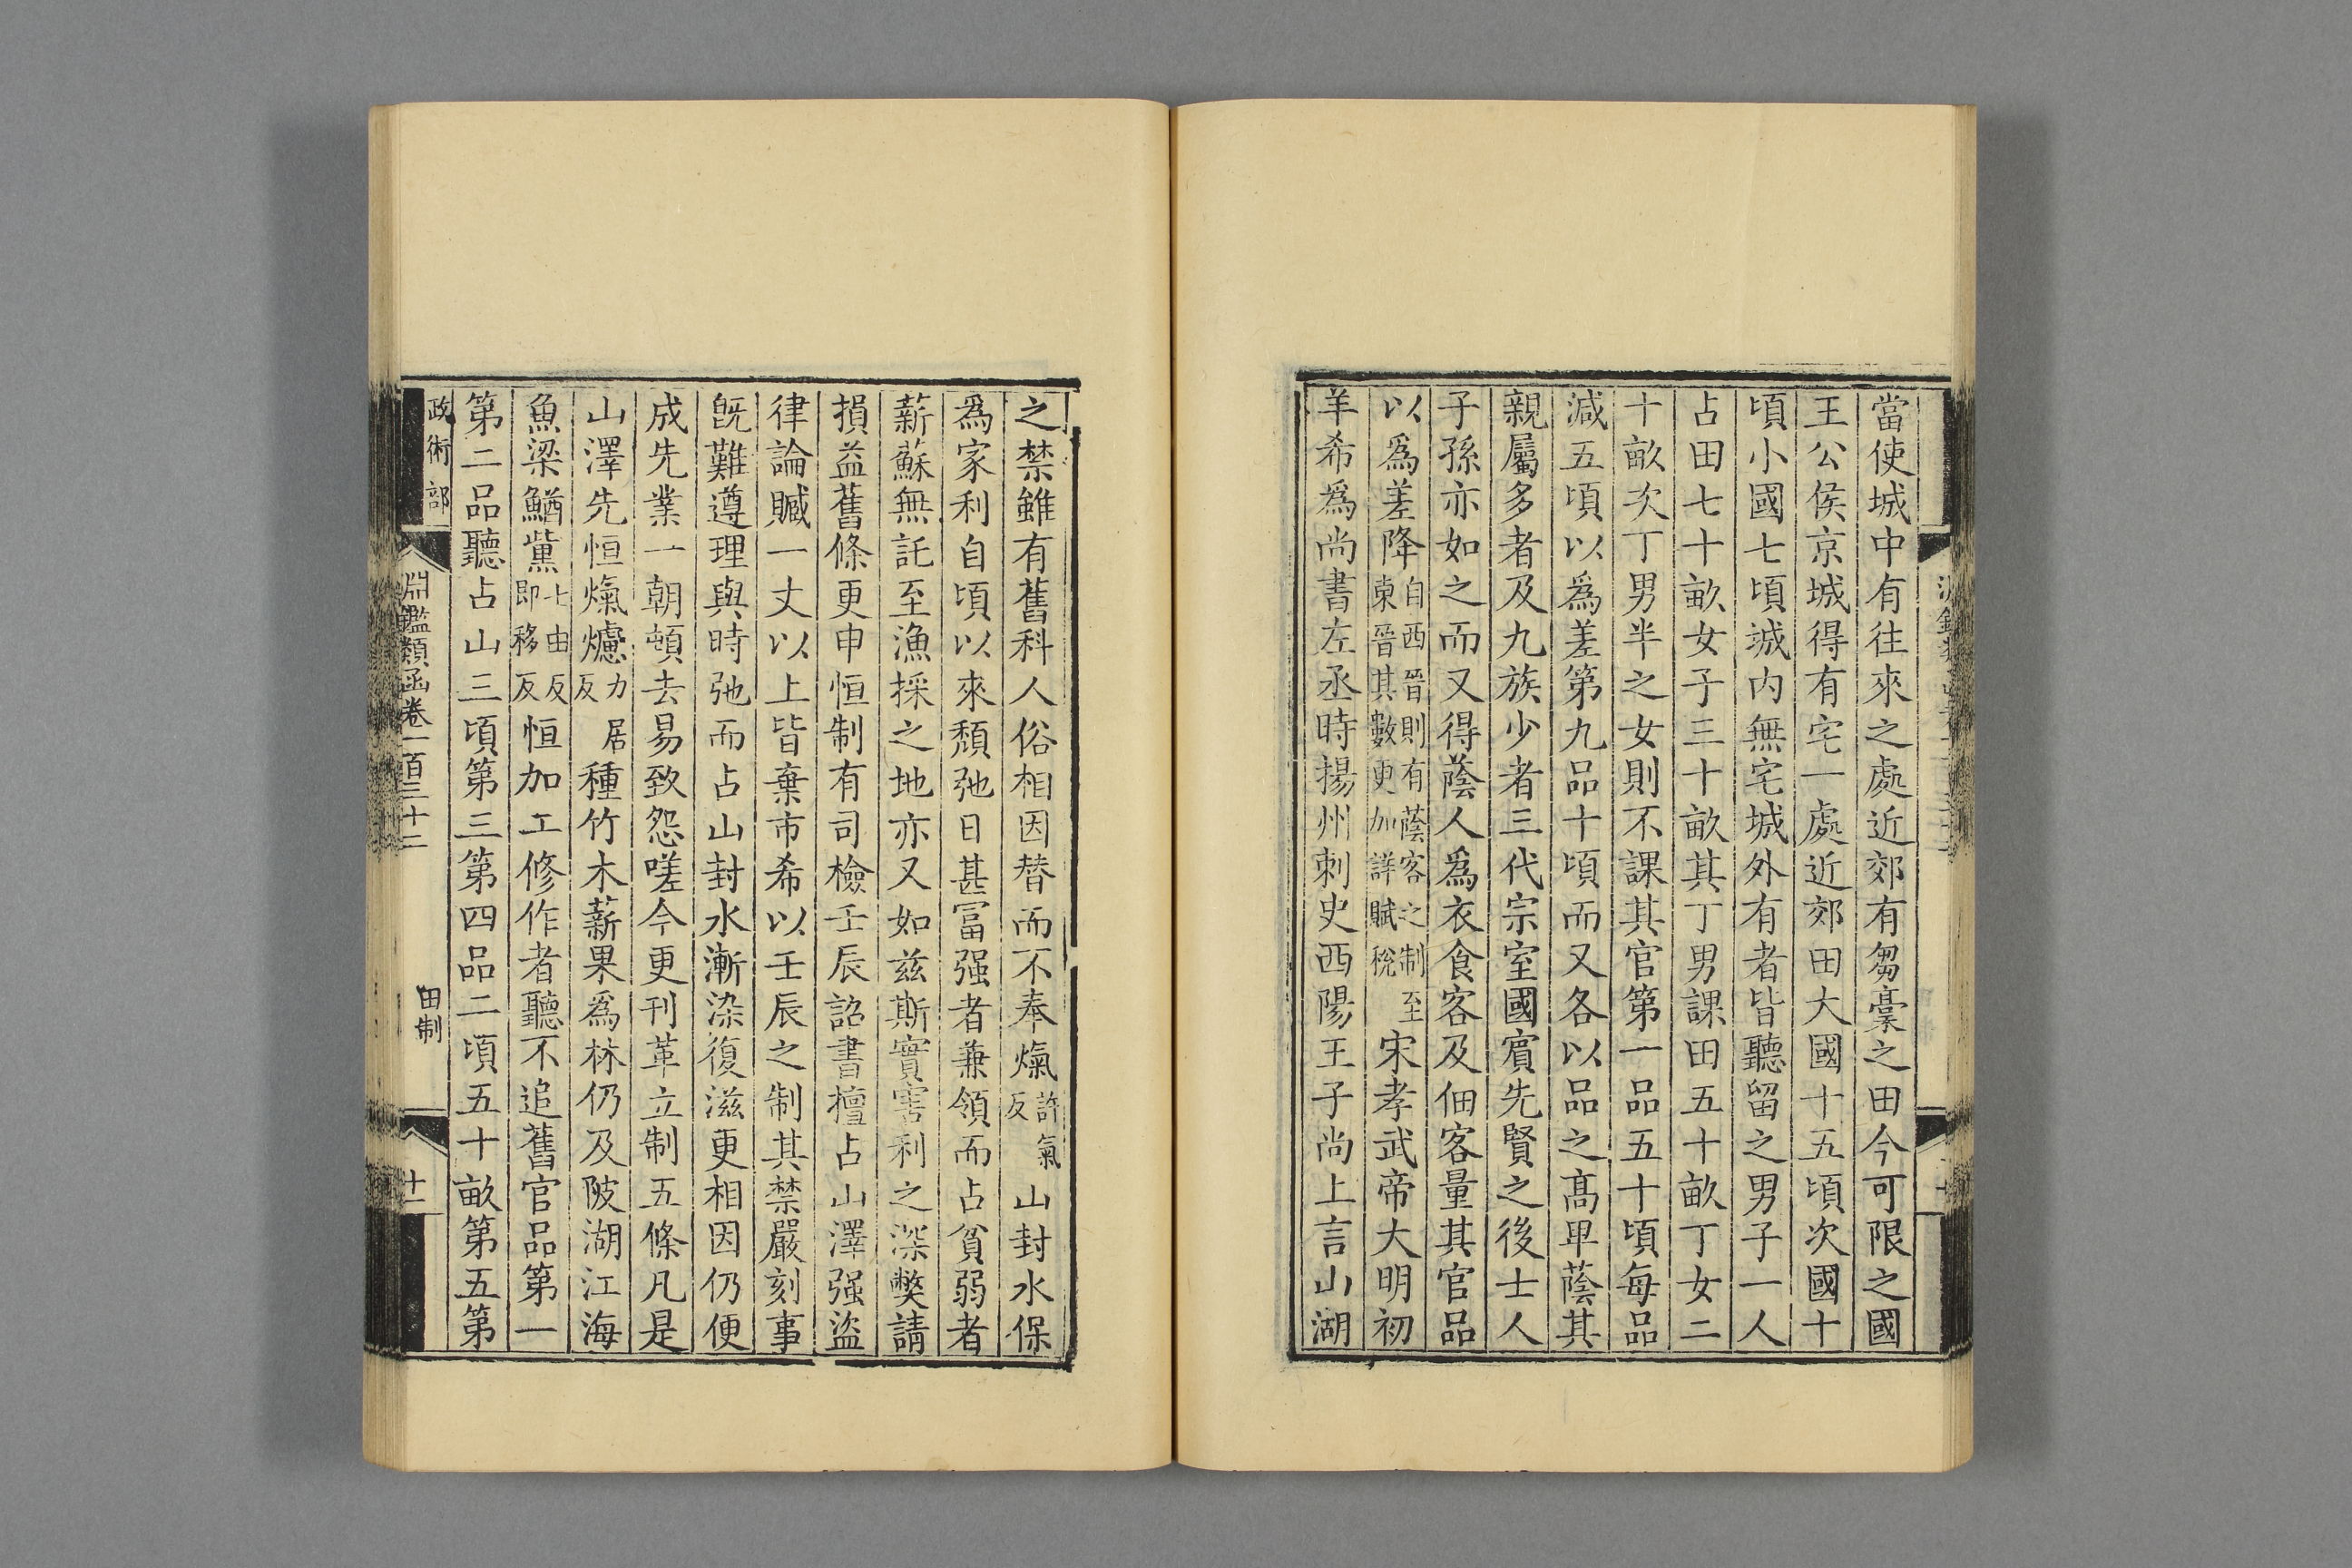 當使城中有往來之處近郊有芻稾之田今可限之國
王公侯京城得有宅一處近郊田大國十五頃次國十
頃小國七頃城内無宅城外有者皆聽留之男子一人
占田七十畝女子三十畝其丁男課田五十畝丁女二
十畝次丁男半之女則不課其官第一品五十頃每品
減五頃以爲差第九品十頃而又各以品之髙卑蔭其
親屬多者及九族少者三代宗室國賔先賢之後士人
子孫亦如之而又得蔭人爲衣食客及佃客量其官品
以爲差降自西晉則有蔭客之制至東晉其數更加詳賦稅宋孝武帝大明初
羊希爲尚書左丞時揚州刺史西陽王子尚上言山湖
之禁雖有舊科人俗相因替而不奉爈許氣反山封水保
爲家利自頃以來頹弛日甚冨强者兼領而占貧弱者
薪蘇無託至漁採之地亦又如兹斯實害利之深弊請
損益舊條更申恒制有司檢壬辰詔書擅占山澤强盜
律論贓一丈以上皆棄市希以壬辰之制其禁嚴刻事
旣難遵理與時弛而占山封水漸染復滋更相因仍便
成先業一朝頓去易致怨嗟今更刊革立制五條凡是
山澤先恒爈爈力居反種竹木薪果爲林仍及陂湖江海
魚梁鰌鮆七由反即移反恒加工修作者聽不追舊官品第一
第二品聽占山三頃第三第四品二頃五十畝第五第
政術部
淵鑑類函卷一百三十二
田制
十一